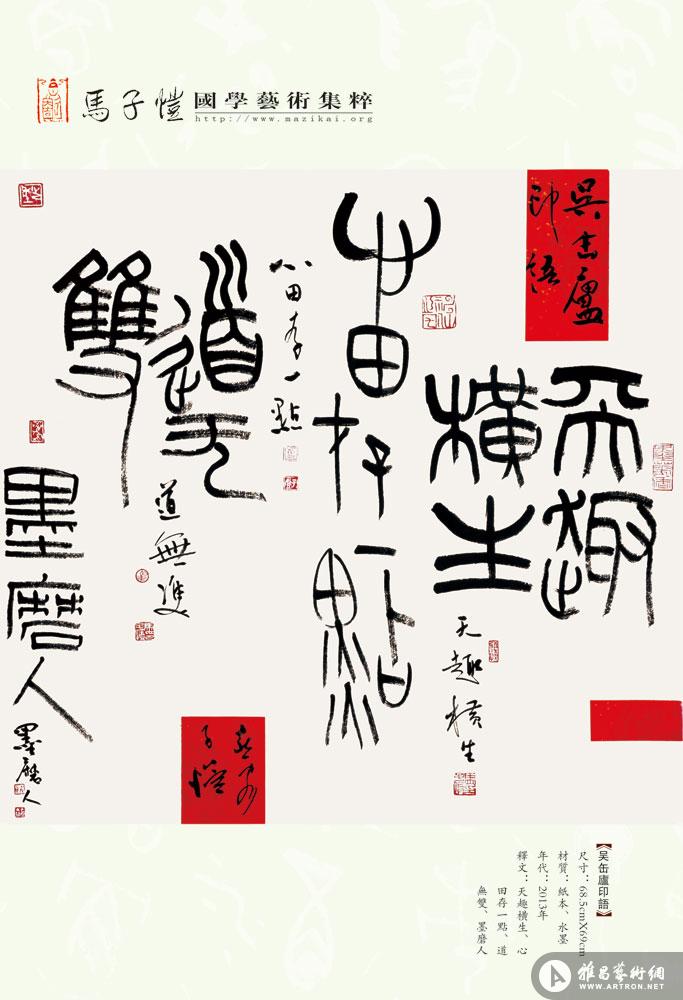 馬子愷 國學藝術集粹
http://www.mazikai.org
吳缶廬
印語
天趣
橫生
天趣橫生
心田存一點
心田存一點
道无
雙
道無雙
墨磨人
墨磨人
子愷
《吴缶廬印語》
尺寸：68.5cmX69cm
材質：紙本、水墨
年代：2013年
釋文：天趣橫生、心
田存一點、道
無雙、墨磨人
雅昌藝術網
WWW.ARTRON.NET